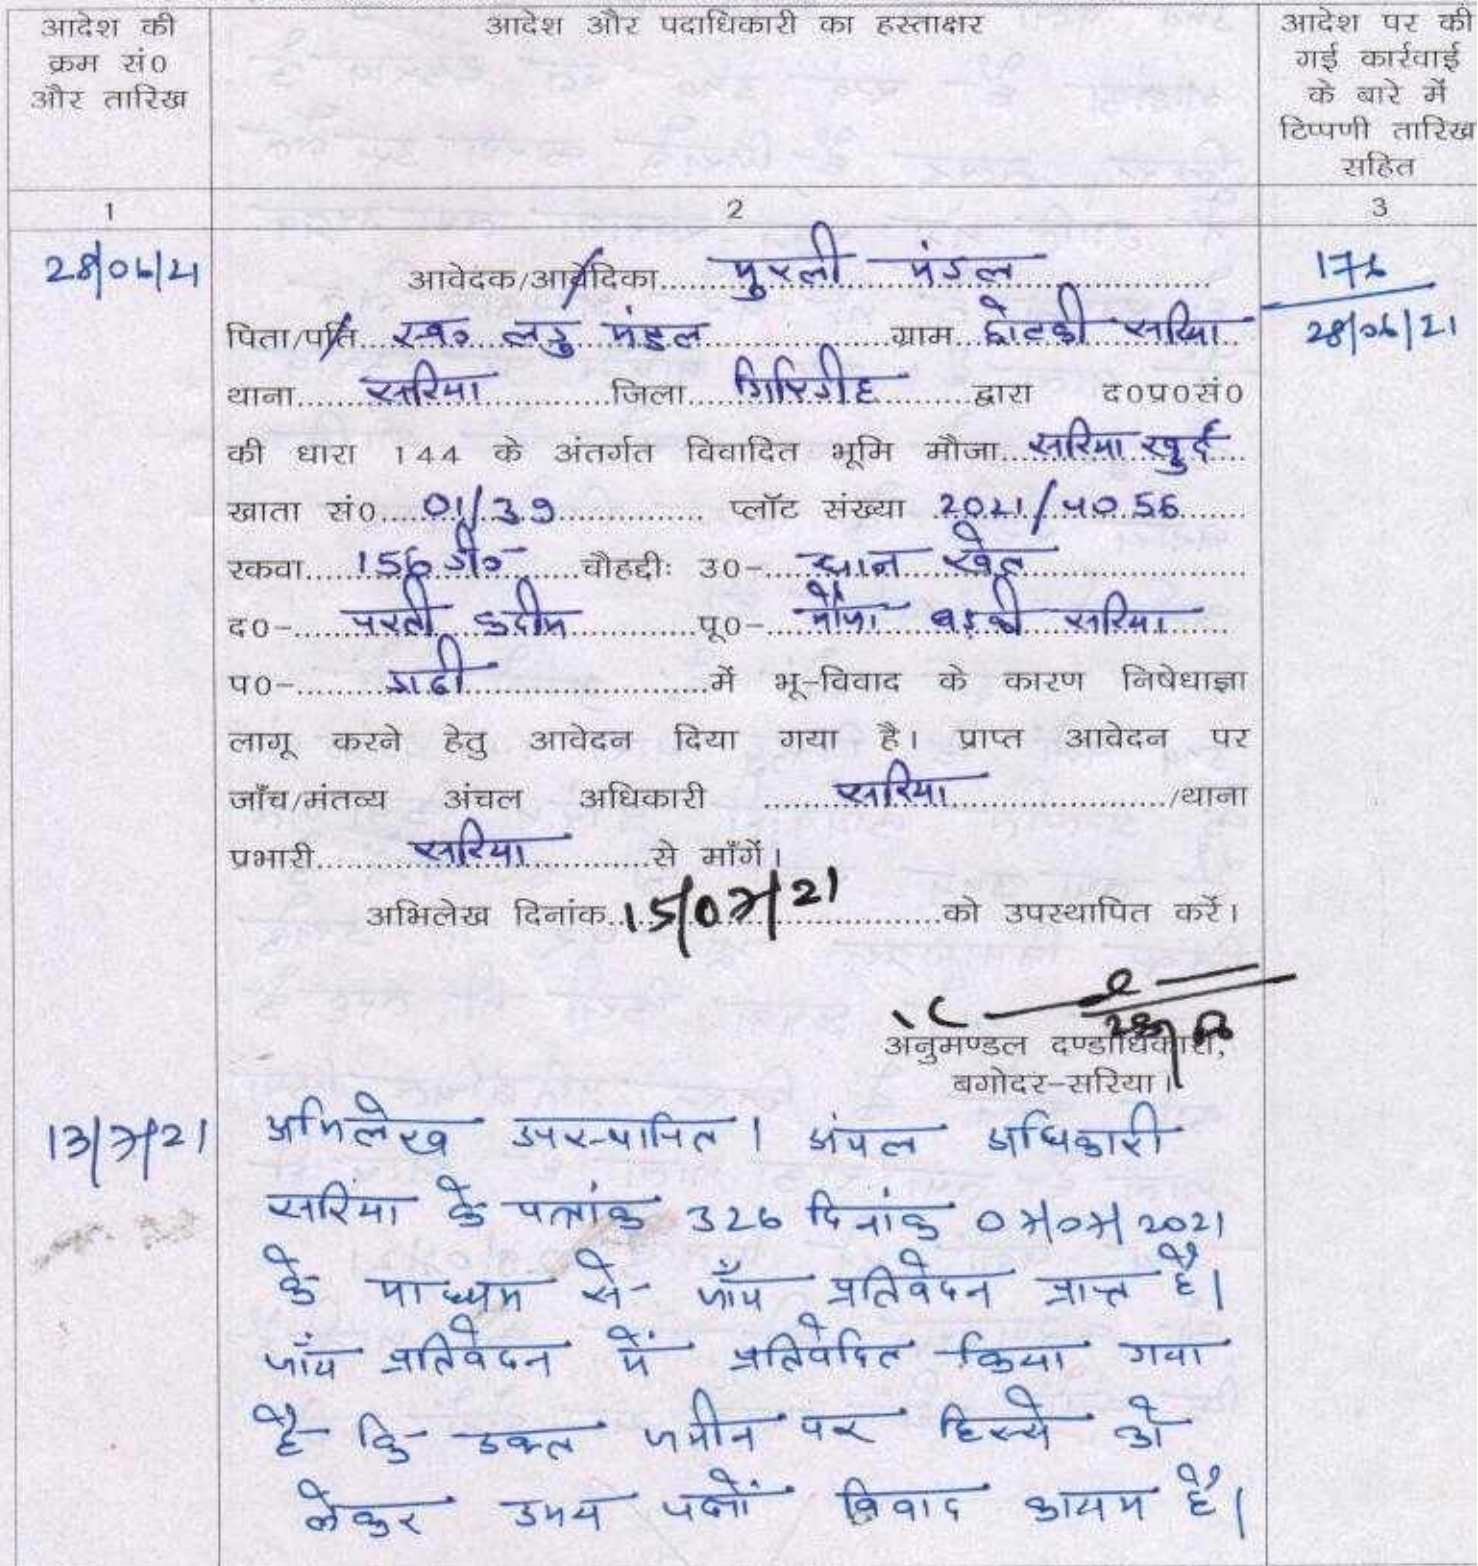 आदेश की
क्रम सं0
और तारिख
आदेश और पदाधिकारी का हस्ताक्षर
आदेश पर की
गई कार्रवाई
के बारे में
टिप्पणी तारिख
सहित
1
2
3
28/06/21
176
28/06/21
आवेदक/आवेदिका....मुरली मंडल....
पिता/पति...स्व० लटु मंडल...ग्राम..छोटकी सरिया..
थाना....सरिया....जिला..गिरिडीह....द्वारा द0प्र0सं0
की धारा 144 के अंतर्गत विवादित भूमि मौजा...सरिया खुर्द...
खाता सं0...01/39.... प्लॉट संख्या 2021/4056....
रकवा...156 डी०...चौहद्दीः उ0-...धान खेत....
द0-...परती कदीम....पू0-...मौजा बड़की सरिया....
प0-.............में भू-विवाद के कारण निषेधाज्ञा
लागू करने हेतु आवेदन दिया गया है। प्राप्त आवेदन पर
जाँच/मंतव्य अंचल अधिकारी ....सरिया..../थाना
प्रभारी....सरिया....से माँगें।
अभिलेख दिनांक..15/07/21....को उपस्थापित करें।
अनुमण्डल दण्डाधिकारी,
बगोदर-सरिया।
13/7/21
अभिलेख उपस्थापित। अंचल अधिकारी
सरिया के पत्रांक 326 दिनांक 07/07/2021
के माध्यम से जाँच प्रतिवेदन प्राप्त है।
जाँच प्रतिवेदन में प्रतिवेदित किया गया
है कि उक्त जमीन पर हिस्से को
लेकर उभय पक्षों विवाद कायम है।